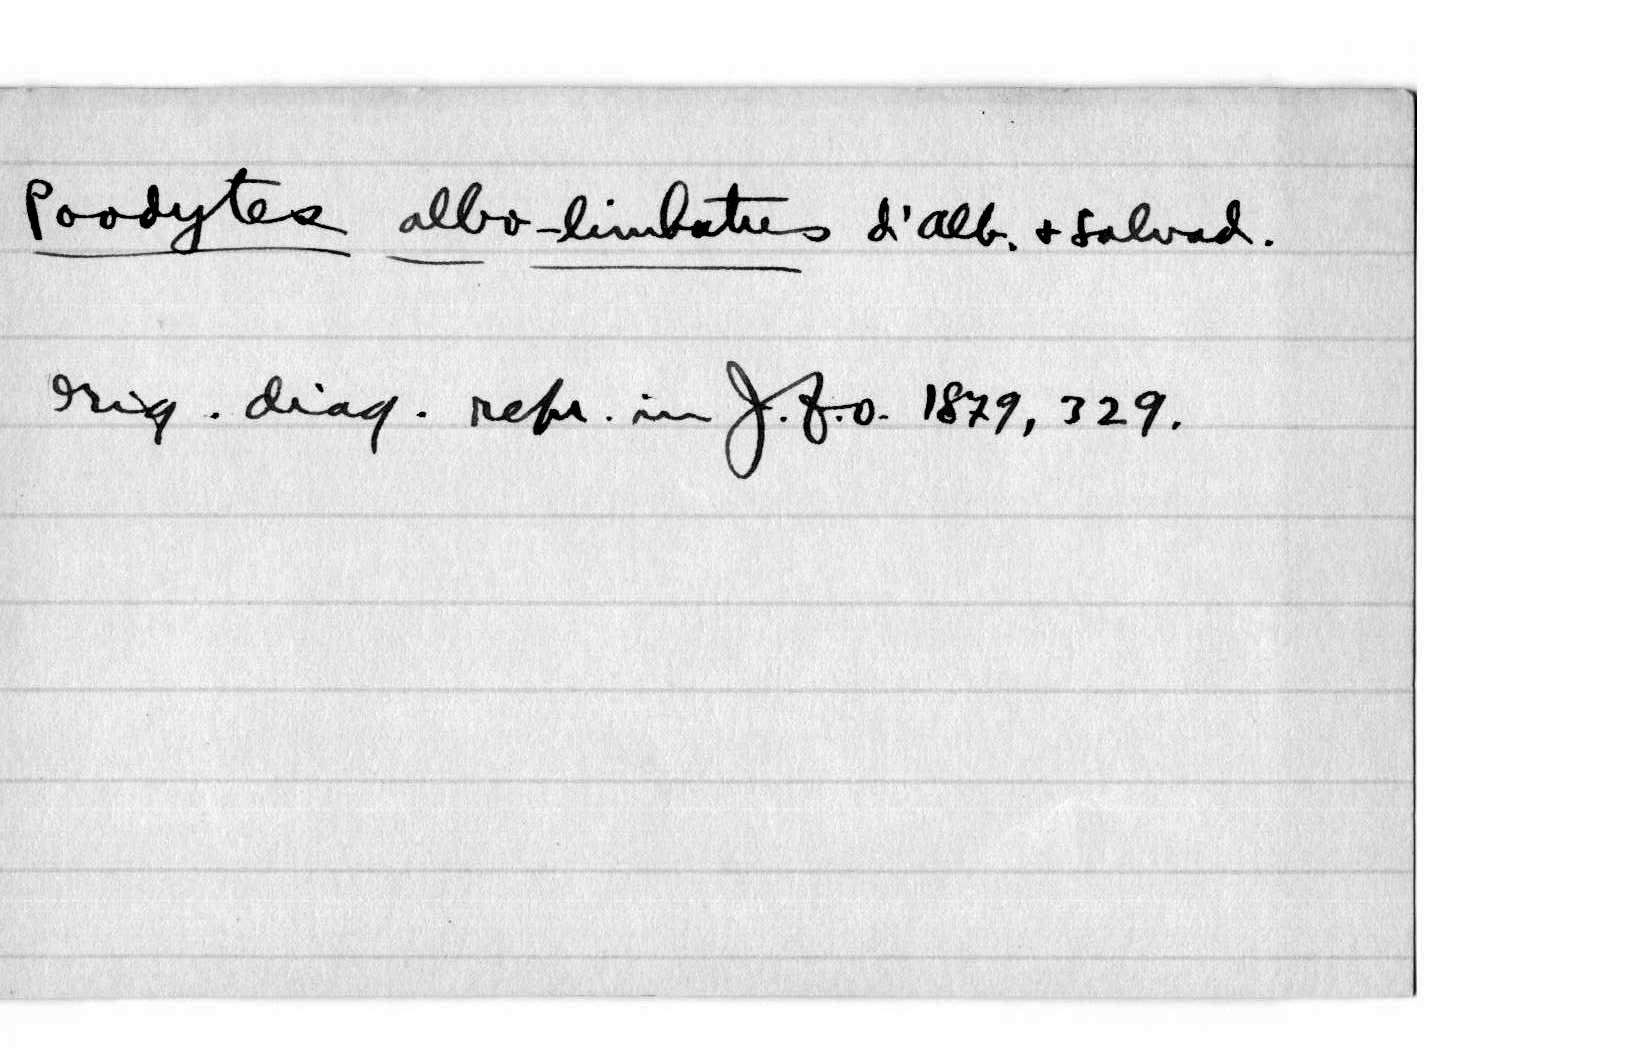 Poodytes albo-limbatus d'Alb. + Salvad.
Orig. diag. repr. in J.f.O. 1879, 329.